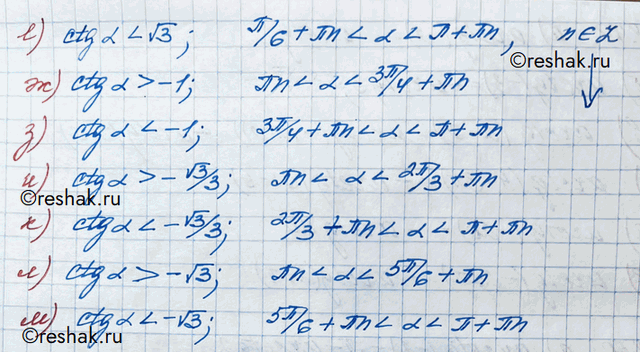 е) ctg α < √3; π/6 + πn < α < π + πn, n ∈ Z
©reshak.ru
ж) ctg α > -1; πn < α < 3π/4 + πn
з) ctg α < -1; 3π/4 + πn < α < π + πn
и) ctg α > -√3/3; πn < α < 2π/3 + πn
©reshak.ru
к) ctg α < -√3/3; 2π/3 + πn < α < π + πn
л) ctg α > -√3; πn < α < 5π/6 + πn
м) ctg α < -√3; 5π/6 + πn < α < π + πn
©reshak.ru